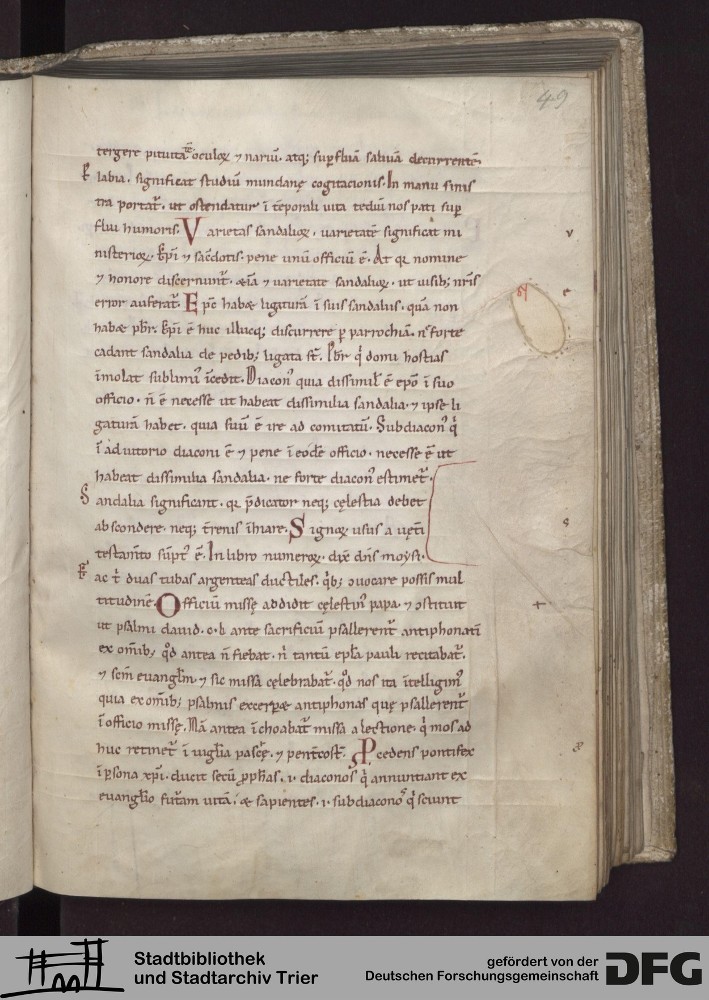 49
tergere pituitā oculoꝝ ⁊ nariū. atq; suꝑfluā saliuā decurrentē
labia. significat studiū mundanę cogitacionis. In manu sinis
tra portat᷑. ut ostendatur ī tēporali uita tediū nos pati suꝑ
flui humoris. Varietas sandalioꝝ. uarietatē significat mi
nisterioꝝ. Ep̄i ⁊ sac̄dotis. pene unū officiū ē. At qꝛ nomine
⁊ honore discernunt᷑. &iā ⁊ uarietate sandalioꝝ. ut uisib; nr̄is
error auferat᷑. Ep̄c hab& ligaturā ī suis sandaliis. quā non
hab& pb̄r. Ep̄i ē huc illucq; discurrere ꝑ parrochiā. n̄ forte
cadant sandalia de pedib; ligata st̄. Pb̄r q̇ domi hostias
īmolat sublimi᷒ īcedit. Diacon᷒ quia dissimil̄ ē ep̄o ī suo
officio. n̄ ē necesse ut habeat dissimilia sandalia. ⁊ ipse li
gaturā habet. quia suū ē ire ad comitatū. Subdiacon᷒ q̇
ī adiutorio diaconi ē ⁊ pene ī eodē officio. necesse ē ut
habeat dissimilia sandalia. ne forte diacon᷒ estimet᷑.
Sandalia significant. qꝛ p̄dicator neq; cęlestia debet
abscondere. neq; t̄renis īhiare. Signoꝝ usus a uęt̄i
testam̄to sūpt᷒ ē. In libro numeroꝝ. dix̄ dn̄s moysi.
Fac t̄ duas tubas argenteas ductiles. q̇b; ꝯuocare possis mul
titudinē. Officiū missę addidit cęlestin᷒ papa. ⁊ ꝯstituit
ut psalmi dauid .c.l. ante sacrificiū psallerent᷑ antiphonatī
ex om̄ib; qd̄ antea n̄ fiebat. n̄ tantū epl̄a pauli recitabat᷑.
⁊ sc̄m euangl̄m ⁊ sic missa cęlebrabat᷑. qd̄ nos ita ītelligim᷒
quia ex om̄ib; psalmis excerp& antiphonas quę psallerent᷑
ī officio missę. Nā antea īchoabat᷑ missa a lectione. q̇ mos ad
huc retinet᷑ ī uigl̄ia paschę. ⁊ pent̄cost̄. Pcedens pontifex
ī ꝑsona xp̄i. ducit secū ꝓph̄as .i. diaconos q̇ annuntiant ex
euangl̄io fut̄am uitā. & sapientes .i. subdiaconos q̇ sciunt
Stadtbibliothek
und Stadtarchiv Trier
gefördert von der
Deutschen Forschungsgemeinschaft
DFG